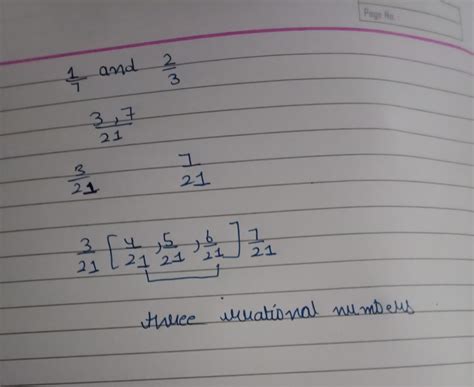 Page No.
1/7 and 2/3
3, 7/21
3/21 7/21
3/21 [4/21, 5/21, 6/21] 7/21
three irrational numbers